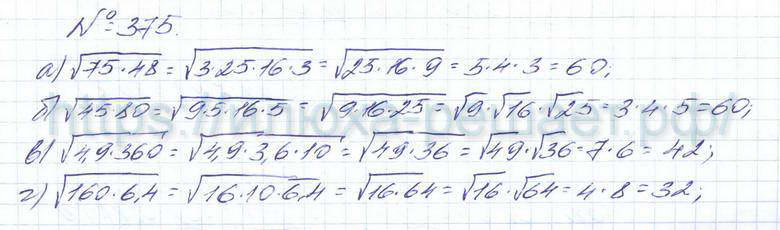 №375.
а) √75·48 = √3·25·16·3 = √25·16·9 = 5·4·3 = 60;
б) √45·80 = √9·5·16·5 = √9·16·25 = √9·√16·√25 = 3·4·5 = 60;
в) √4,9·360 = √4,9·3,6·10 = √49·36 = √49·√36 = 7·6 = 42;
г) √160·6,4 = √16·10·6,4 = √16·64 = √16·√64 = 4·8 = 32;